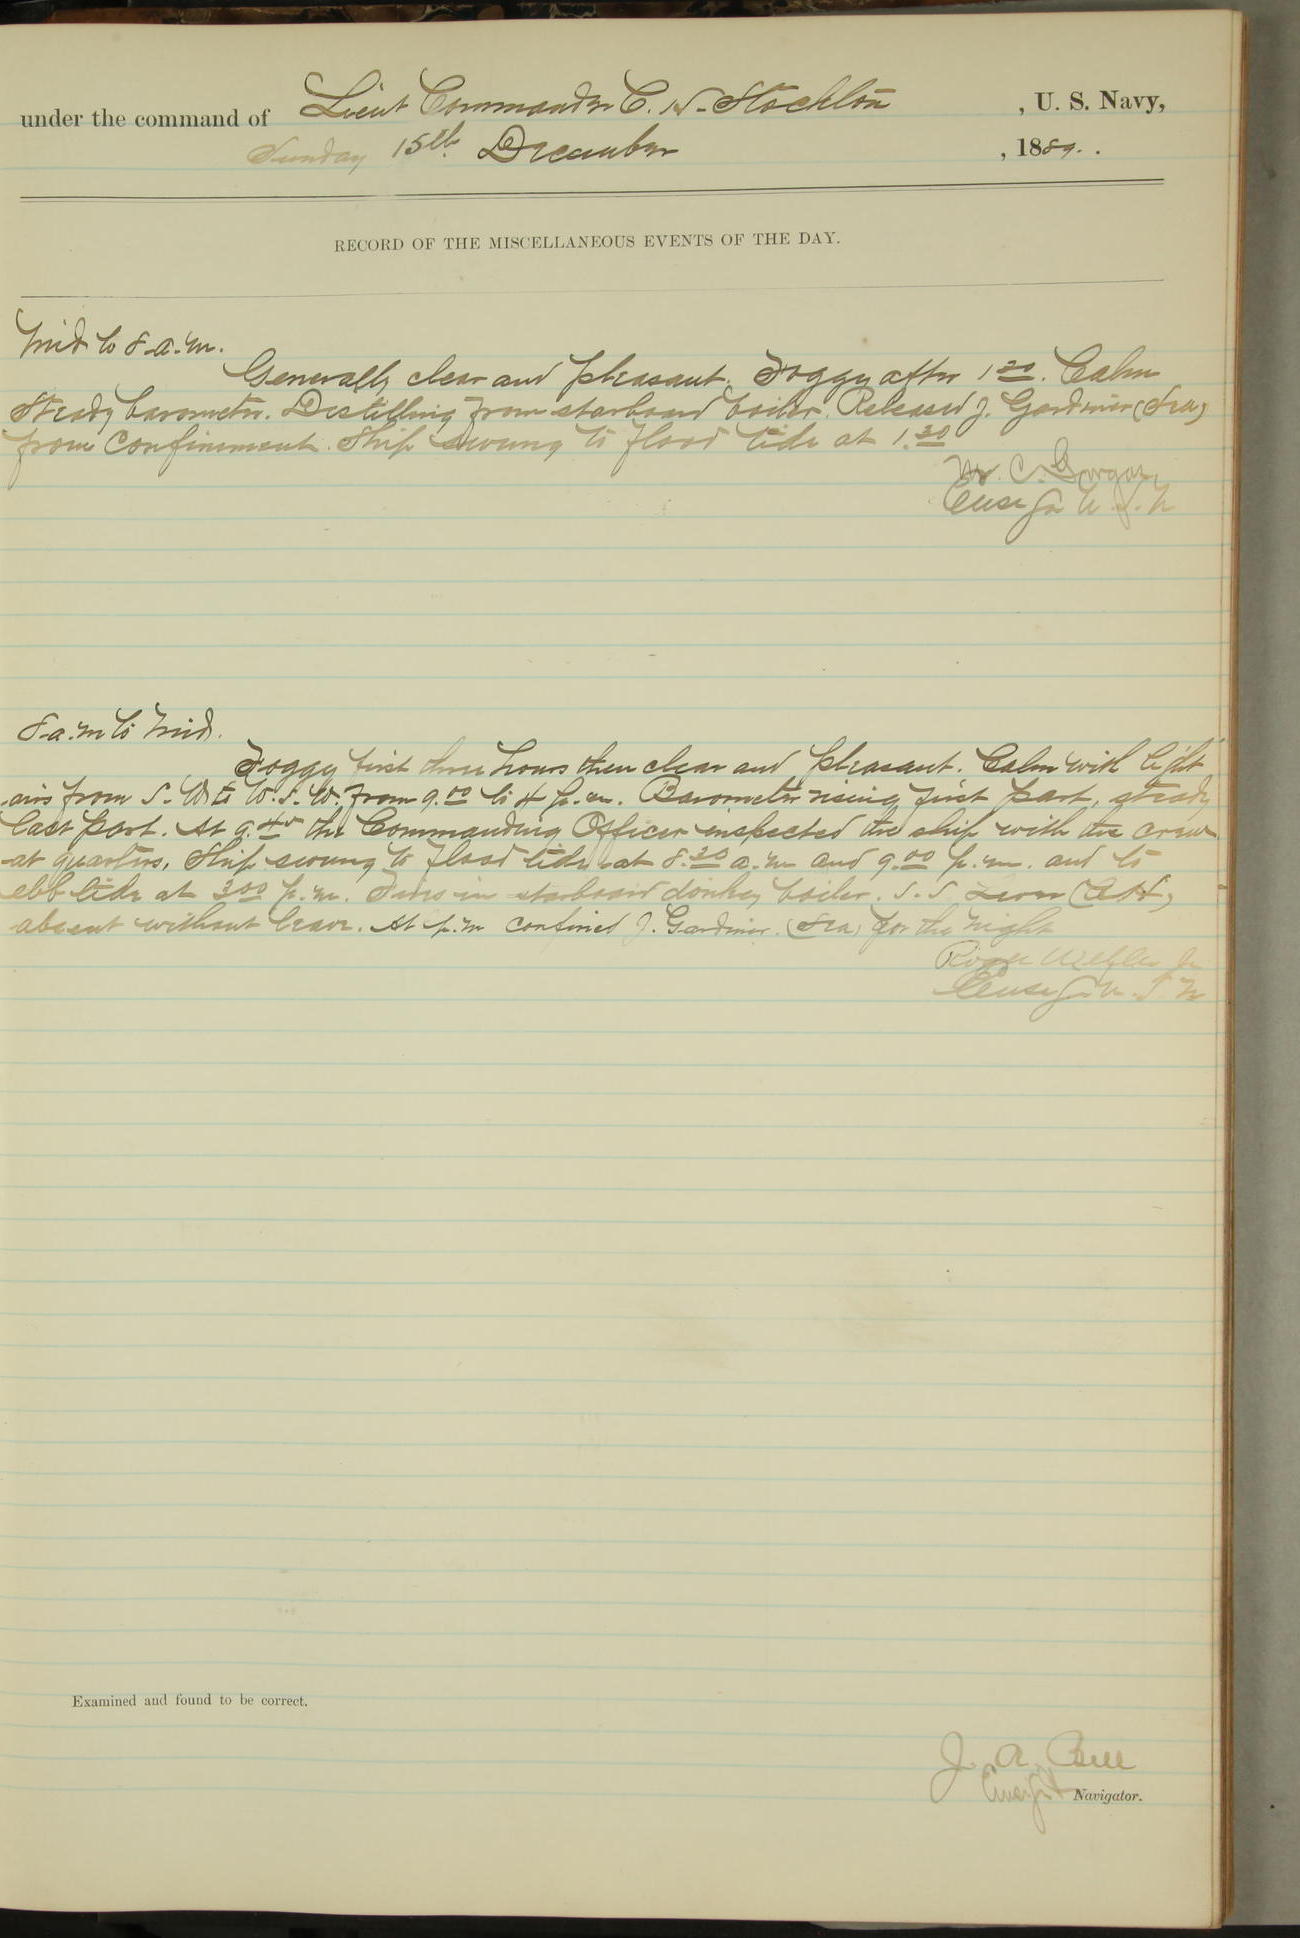 under the command of Lieut Commander C. H. Stockton, U. S. Navy,
Sunday 15th December, 1889.
RECORD OF THE MISCELLANEOUS EVENTS OF THE DAY.
Mid to 8 a.m.
Generally clear and pleasant. Foggy after 1.30. Calm
Steady barometer. Distilling from starboard boiler. Released J. Gardiner (Sea)
from confinement. Ship swung to flood tide at 1.30
W. C. Gorgas
Ensign U.S.N
8 a.m to Mid.
Foggy first three hours then clear and pleasant. Calm with light
airs from S.W. to W.S.W. from 9.00 to 4 p.m. Barometer rising first part, steady
last part. At 9.40 the Commanding Officer inspected the ship with the crew
at quarters. Ship swung to flood tide at 8.30 a.m and 9.00 p.m. and to
ebb tide at 3.00 p.m. Fires in starboard donkey boiler. S.S
absent without leave. At p.m confined J. Gardiner. (Sea) for the night
Roger Welles Jr
Ensign U.S.N
Examined and found to be correct.
J. A. Bell
Ensign Navigator.